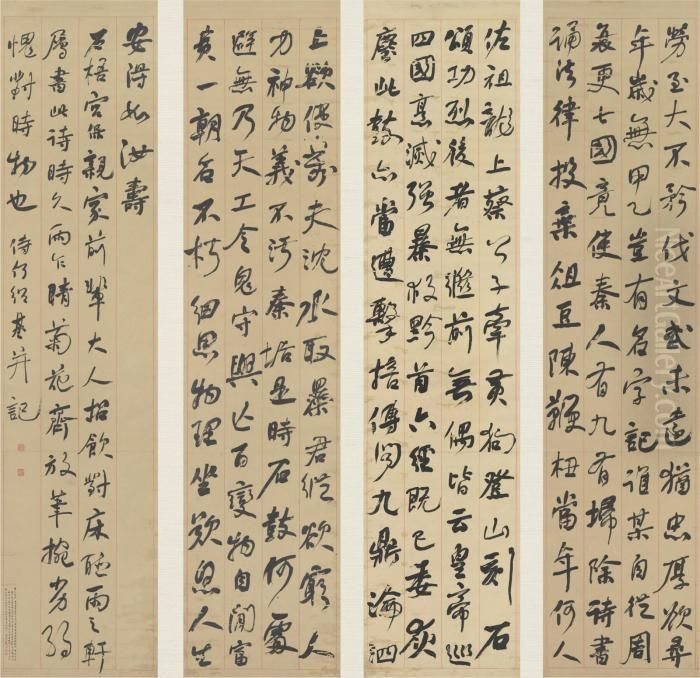 勞至大不矜伐文武未遠猶忠厚欲尋
年歲無甲乙豈有名字記誰某自從周
衰更七國竟使秦人有九有掃除詩書
誦法律投棄俎豆陳鞭杻當年何人
佐祖龍上蔡公子牽黃狗登山刻石
頌功烈後者無繼前無偶皆云皇帝巡
四國烹滅強暴救黔首六經既已委灰
塵此鼓亦當遭擊掊傳聞九鼎淪泗
上欲使萬夫沈水取暴君縱欲窮人
力神物義不污秦垢是時石鼓何處
避無乃天工令鬼守興亡百變物自閒富
貴一朝名不朽細思物理坐歎息人生
安得如汝壽
石梧宮保親家前輩大人招飲對床聽雨之軒
屬書此詩時久雨乍晴菊花齊放筆椀劣弱
愧對時物也 侍何紹基并記
NiceArtGallery.com